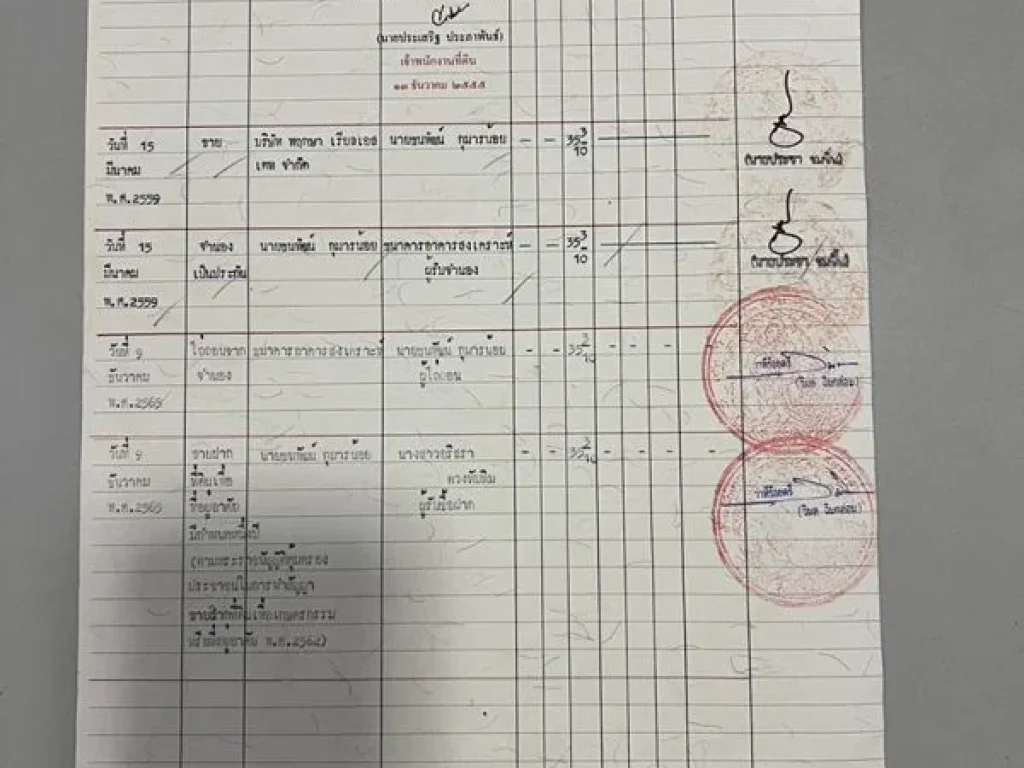 (นายประเสริฐ ประภาพันธ์)
เจ้าพนักงานที่ดิน
๑๓ ธันวาคม ๒๕๕๕
วันที่ 15 ขาย บริษัท พฤกษา เรียลเอส นายชนพัฒน์ กุมารน้อย - - 35 3/10
มีนาคม เตท จำกัด
พ.ศ.2559
(นายประชา
วันที่ 15 จำนอง นายชนพัฒน์ กุมารน้อย ธนาคารอาคารสงเคราะห์ - - 35 3/10
มีนาคม เป็นประกัน ผู้รับจำนอง
พ.ศ.2559
(นายประชา
วันที่ 9 ไถ่ถอนจาก ธนาคารอาคารสงเคราะห์ นายชนพัฒน์ กุมารน้อย - - 35 3/10 - - - -
ธันวาคม จำนอง ผู้ไถ่ถอน
พ.ศ.2565
ว่าที่ร้อยตรี
วันที่ 9 ขายฝาก นายชนพัฒน์ กุมารน้อย - - 35 3/10 - - - -
ธันวาคม ที่ดินเพื่อ
พ.ศ.2565 ที่อยู่อาศัย ผู้รับซื้อฝาก
ว่าที่ร้อยตรี
มีกำหนดหนึ่งปี
(ตามพระราชบัญญัติคุ้มครอง
ประชาชนในการทำสัญญา
ขายฝากที่ดินเพื่อเกษตรกรรม
หรือที่อยู่อาศัย พ.ศ.2562)